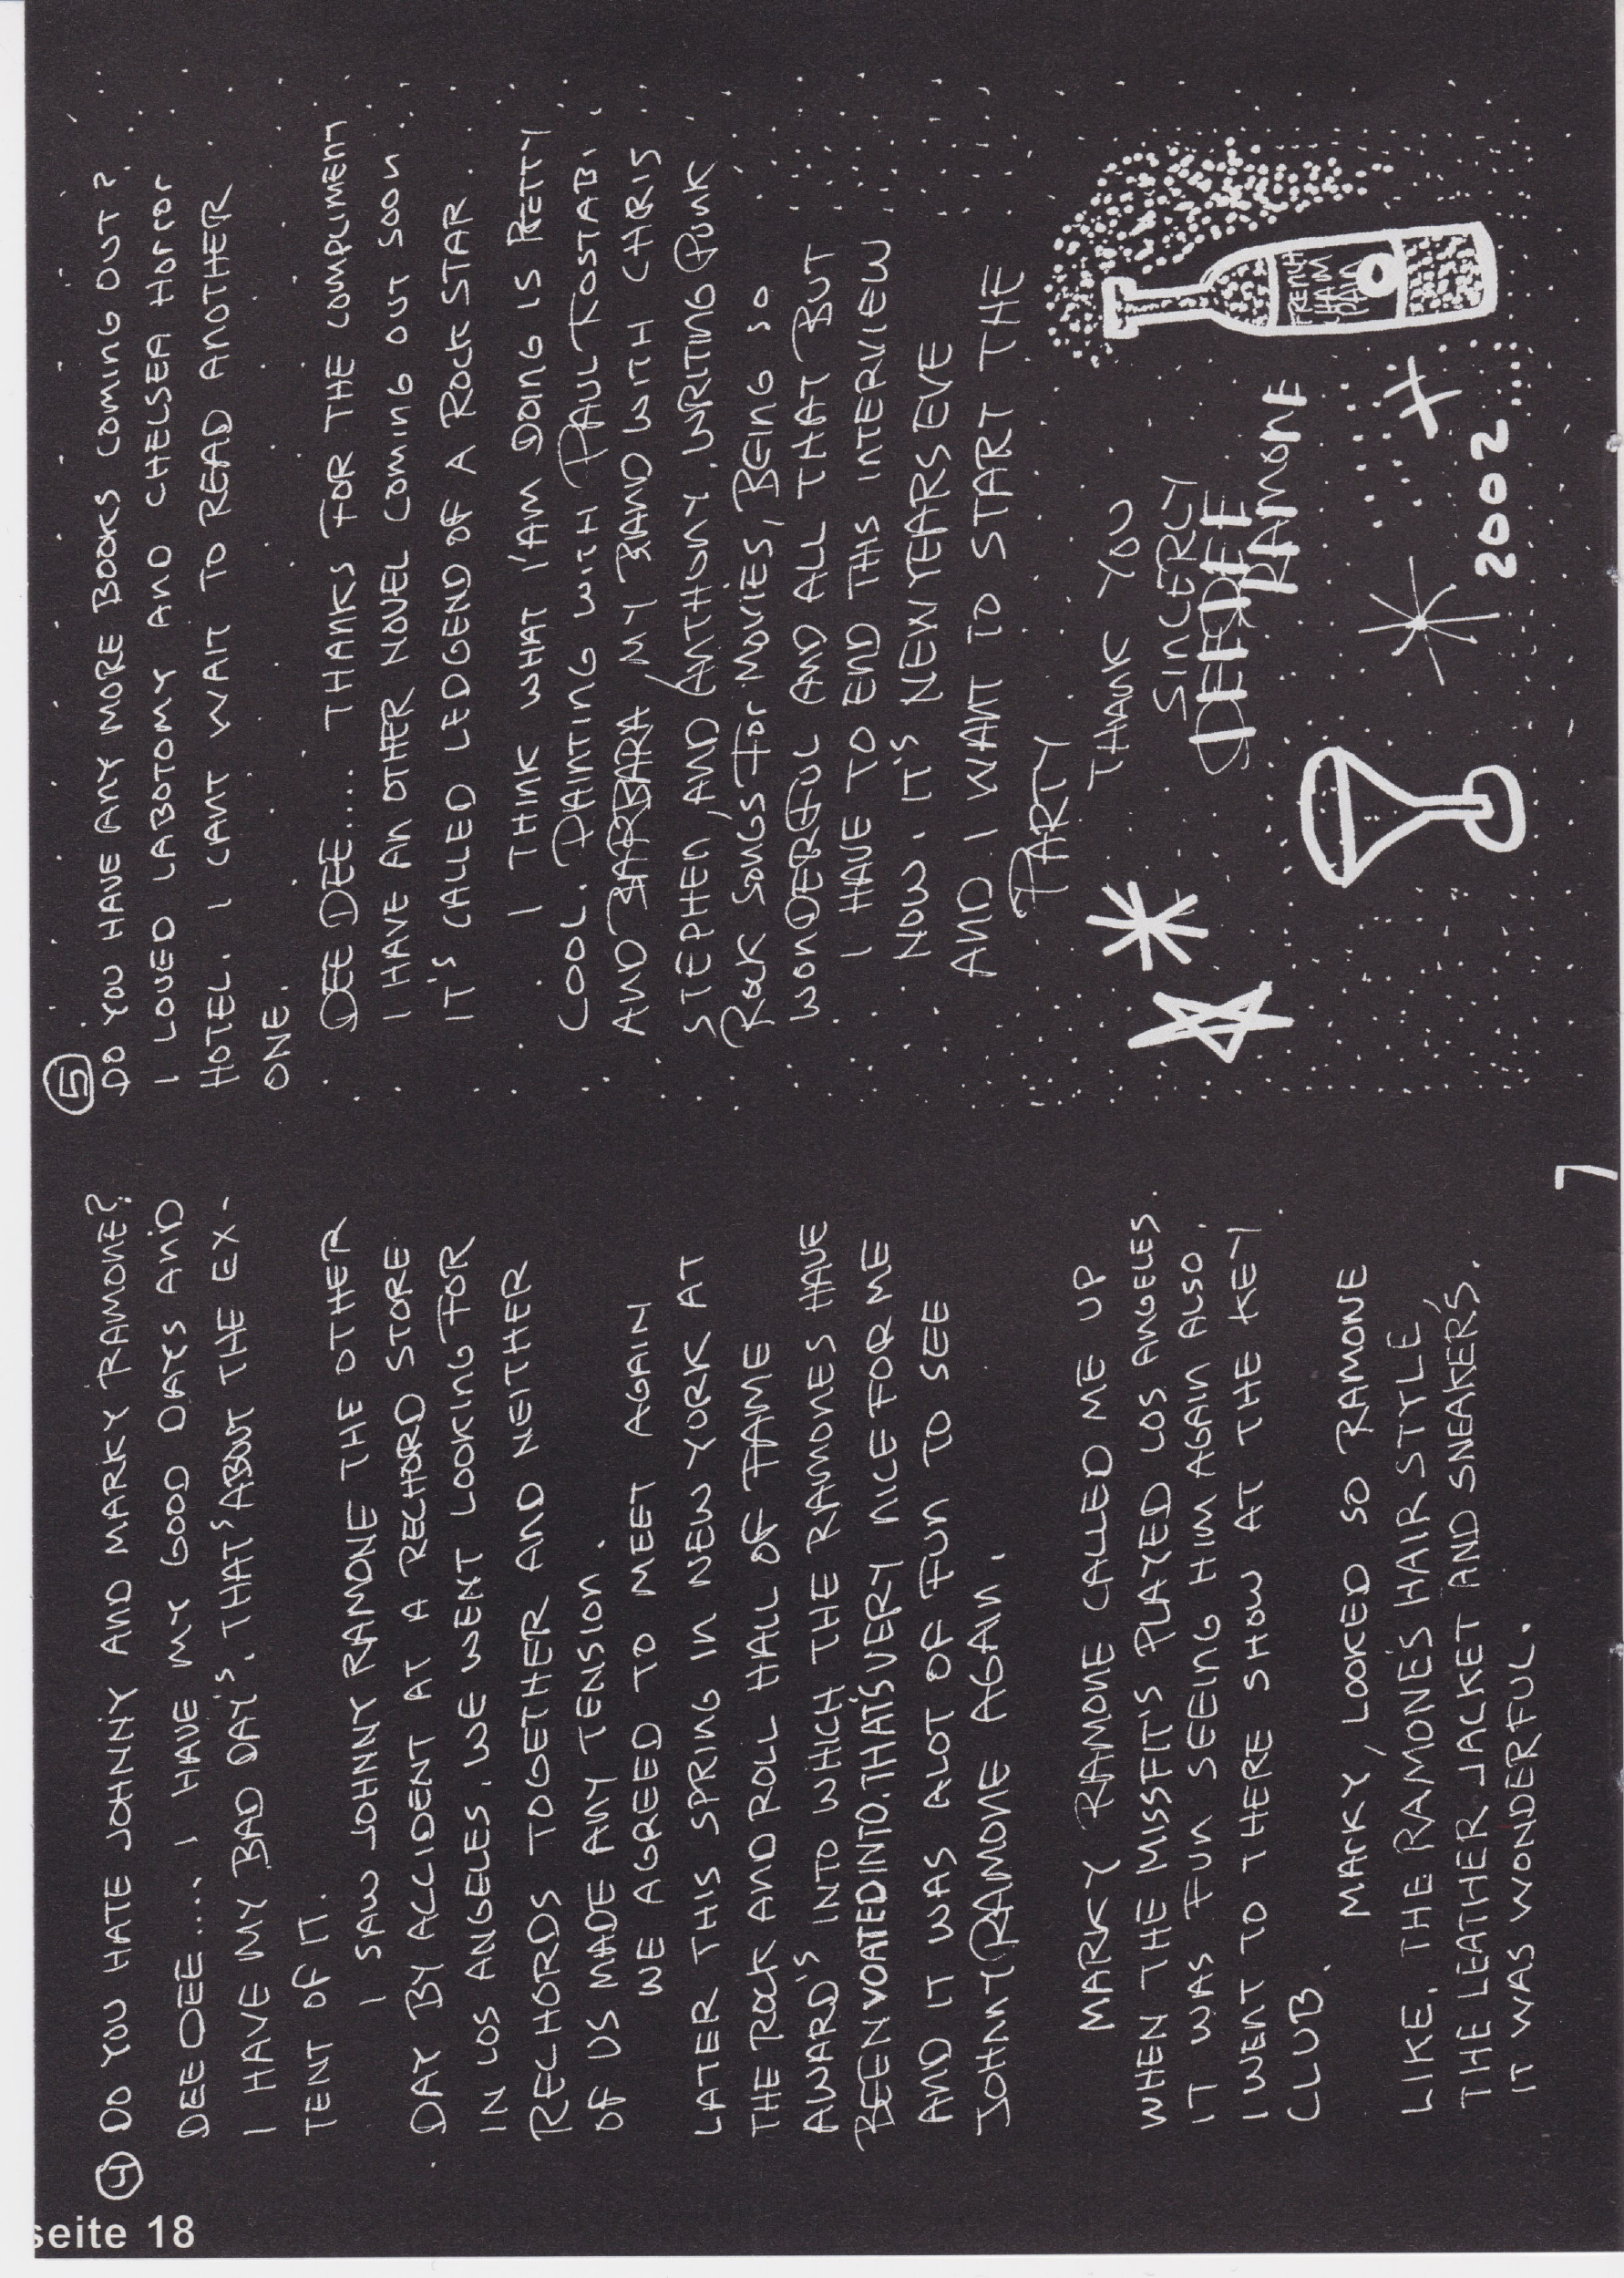 ④ DO YOU HATE JOHNNY AND MARKY RAMONE?
DEE DEE.... I HAVE MY GOOD DAYS AND
I HAVE MY BAD DAY'S. THAT'S ABOUT THE EX-
TENT OF IT.
I SAW JOHNNY RAMONE THE OTHER
DAY BY ACCIDENT AT A RECHORD STORE
IN LOS ANGELES. WE WENT LOOKING FOR
RECHORDS TOGETHER AND NEITHER
OF US MADE ANY TENSION.
WE AGREED TO MEET AGAIN
LATER THIS SPRING IN NEW YORK AT
THE ROCK AND ROLL HALL OF FAME
AWARD'S INTO WHICH THE RAMONES HAVE
BEEN VOATED INTO. THAT'S VERY NICE FOR ME
AND IT WAS ALOT OF FUN TO SEE
JOHNNY RAMONE AGAIN.
MARKY RAMONE CALLED ME UP
WHEN THE MISSFIT'S PLAYED LOS ANGELES.
IT WAS FUN SEEING HIM AGAIN ALSO.
I WENT TO THERE SHOW AT THE KEY
CLUB.
MARKY, LOOKED SO RAMONE
LIKE. THE RAMONE'S HAIR STYLE
THE LEATHER JACKET AND SNEAKER'S.
IT WAS WONDERFUL.
⑤
DO YOU HAVE ANY MORE BOOKS COMING OUT?
I LOVED LABOTOMY AND CHELSEA HORROR
HOTEL. I CANT WAIT TO READ ANOTHER
ONE.
DEE DEE.... THANKS FOR THE COMPLIMENT
I HAVE AN OTHER NOVEL COMING OUT SOON.
IT'S CALLED LEDGEND OF A ROCK STAR.
I THINK WHAT I'AM DOING IS PRETTY
COOL. PAINTING WITH PAUL KOSTABI,
AND BARBARA, MY BAND WITH CHRIS
STEPHEN, AND ANTHONY. WRITING PUNK
ROCK SONGS FOR MOVIES, BEING SO
WONDERFUL AND ALL THAT BUT
I HAVE TO END THIS INTERVIEW
NOW. IT'S NEW YEARS EVE
AND I WANT TO START THE
PARTY
THANK YOU
SINCERLY
DEE DEE
RAMONE
CHAM
2002
7
seite 18